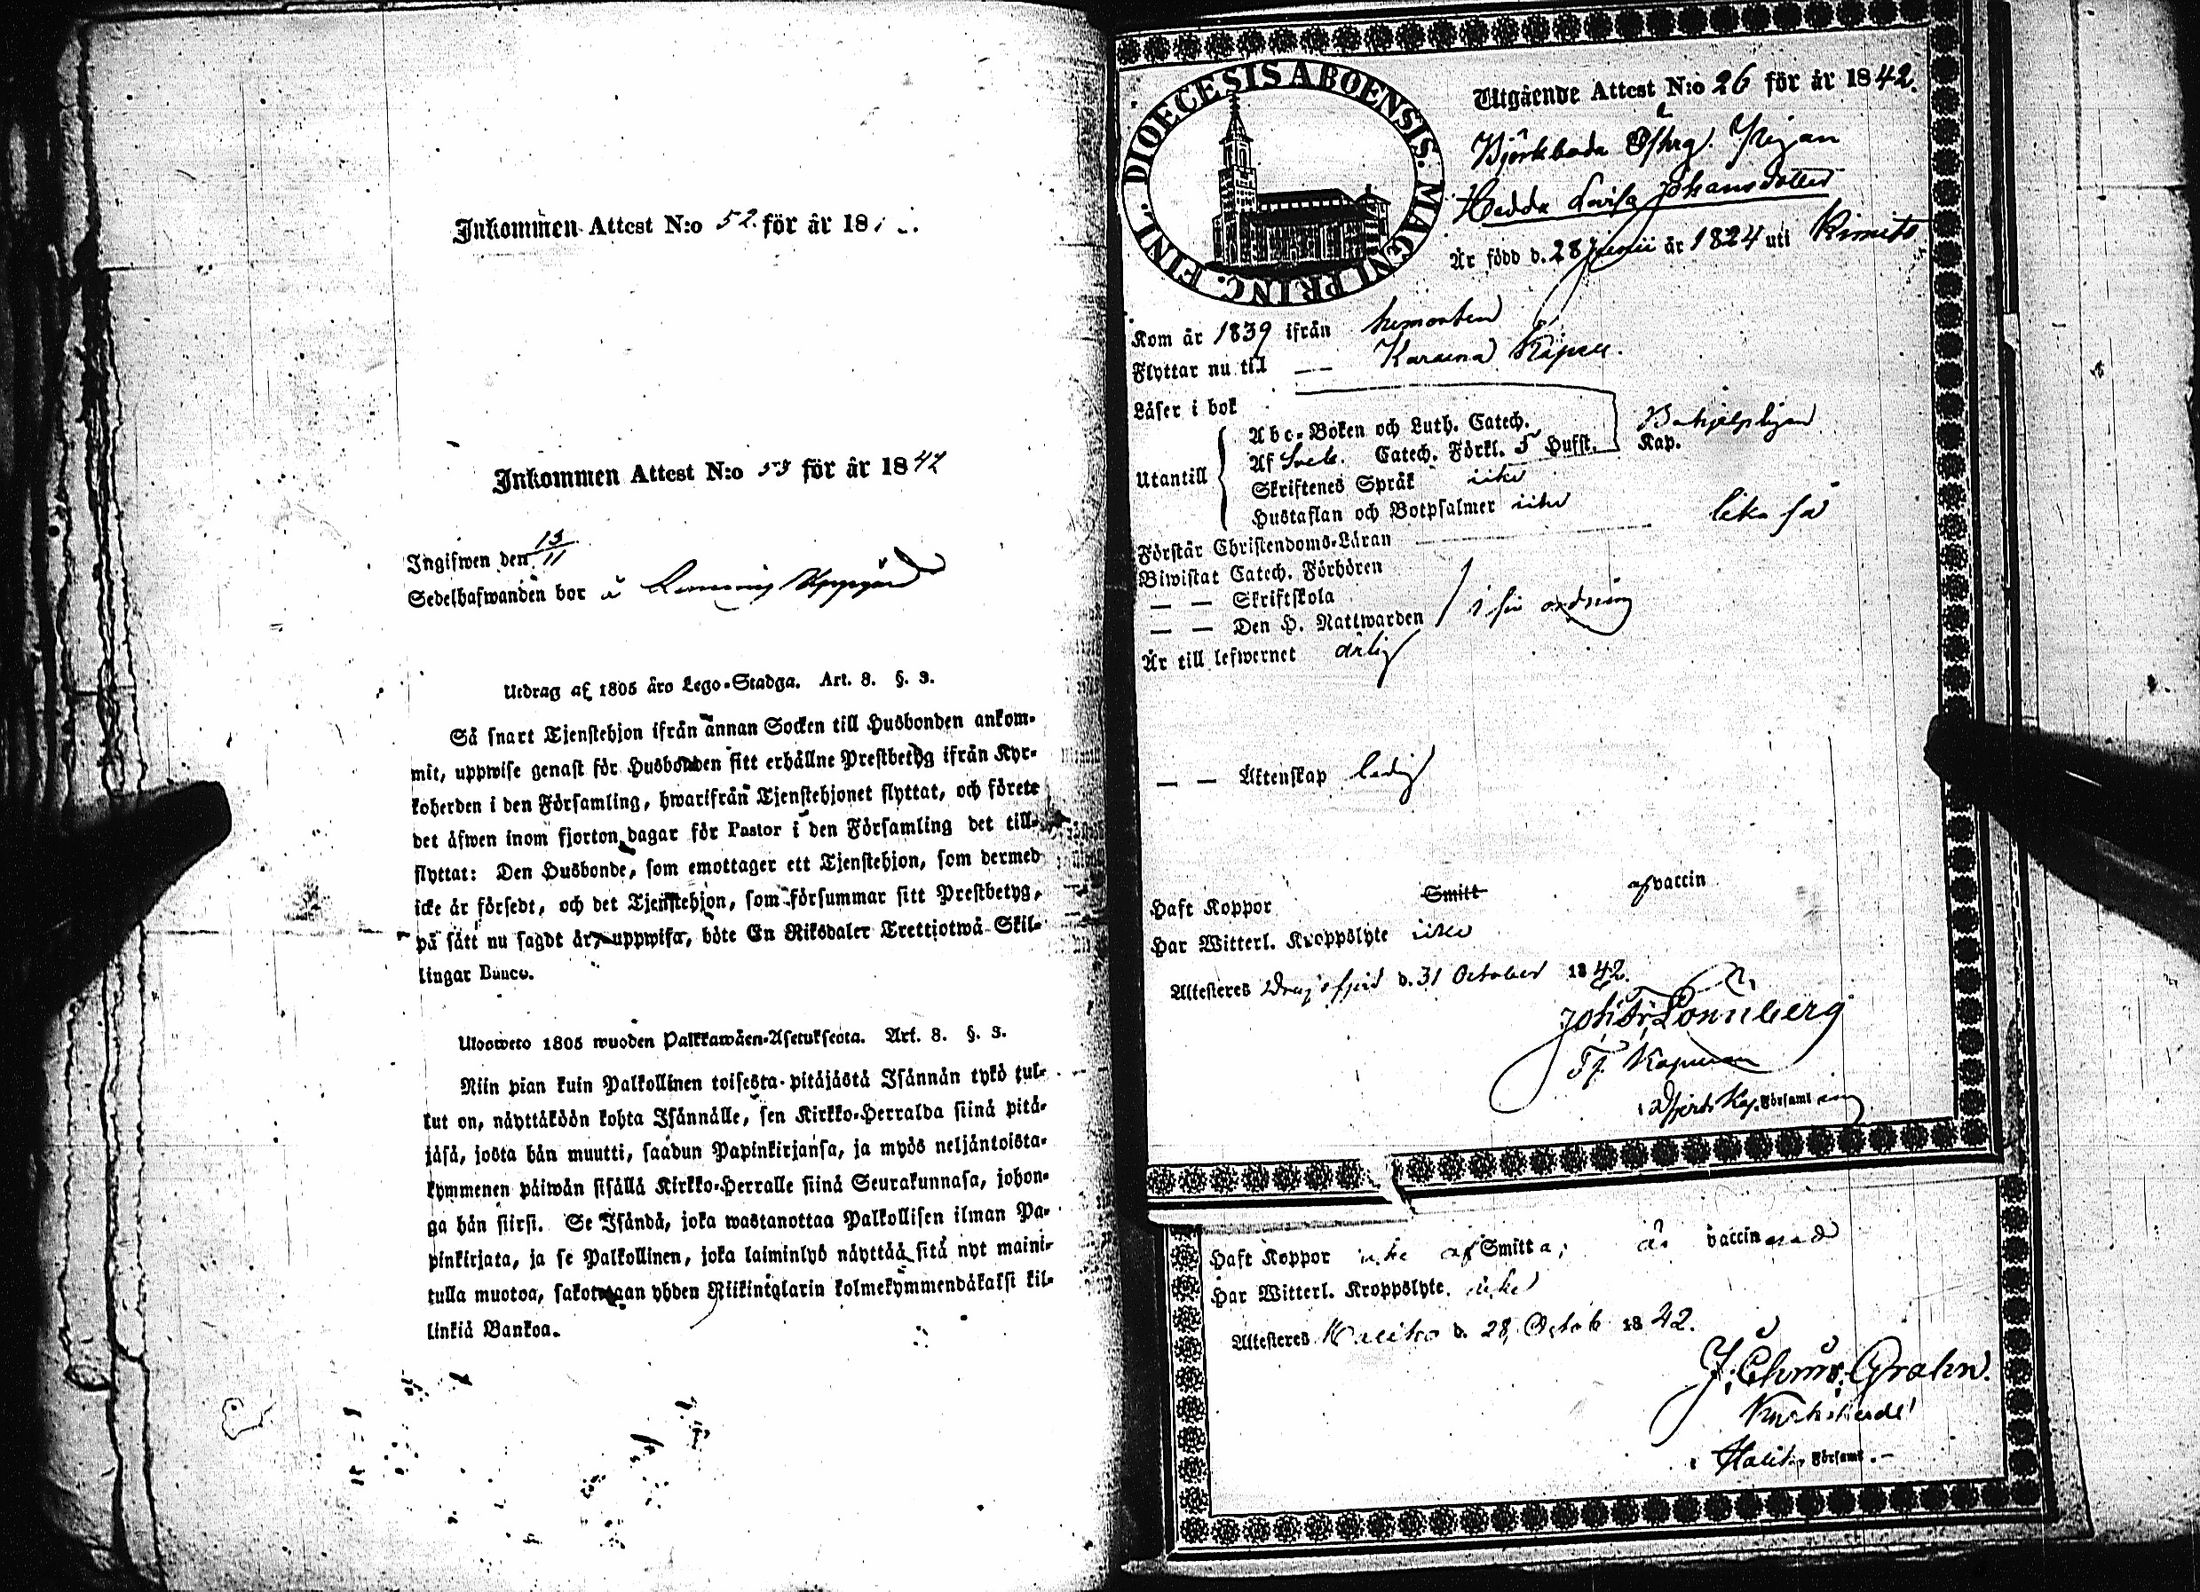 Inkommen Attest N:o 52. för år 18
Inkommen Attest N:o 53 för år 1842
Ingifwen den 13/11
Sedelhafwanden bor å
Utdrag af 1805 åro Lego-Stadga. Art. 8. §. 3.
Så snart Tjenstehjon ifrån annan Socken till Husbonden ankom-
mit, uppwise genast för Husbonden sitt erhållne Prestbetyg ifrån Kyr-
koherden i den Församling, hwarifrån Tjenstehjonet flyttat, och förete
det äfwen inom fjorton dagar för Pastor i den Församling det till-
flyttat: Den Husbonde, som emottager ett Tjenstehjon, som dermed
icke är försedt, och det Tjenstehjon, som försummar sitt Prestbetyg,
på sätt nu sagdt är, uppwisa, böte En Riksdaler Trettiotwå Skil-
lingar Banco.
Ulosweto 1805 wuoden Palkkawäen-Asetuksesta. Art. 8. §. 3.
Niin pian kuin Palkollinen toisesta pitäjästä Isännän tykö tul-
lut on, näyttäköön kohta Isännälle, sen Kirkko-Herralda siinä pitä-
jäsä, josta hän muutti, saadun Papinkirjansa, ja myös neljäntoista-
kymmenen päiwän sisällä Kirkko-Herralle siinä Seurakunnasa, johon-
ga hän siirsi. Se Isändä, joka wastanottaa Palkollisen ilman Pa-
pinkirjata, ja se Palkollinen, joka laiminlyö näyttää sitä nyt maini-
tulla muotoa, sakotetaan yhden Riikintalarin kolmekymmendäkaksi kil-
linkiä Bankoa.
DIOECESIS ABOENSIS. MAGNI PRINC. FINL.
Utgående Attest N:o 26 för år 1842.
Björkboda Pigan
Hedda Lovisa Johansdotter
Är född d. 28 Junii år 1824 uti Kimito
Kom år 1839 ifrån hemorten
Flyttar nu til — — Karuna Kapell.
Läser i bok
Utantill
Abc-Boken och Luth. Catech.
Af Sveb. Catech. Förkl. 5 Hufst. Kap.
Behjelpligen
Skriftenes Språk icke
Hustaflan och Botpsalmer icke
Förstår Christendoms-Läran lika så
Biwistat Catech. Förhören
— — Skriftskola
— — Den H. Nattwarden i sin ordning
Är till lefwernet ärlig
— — Äktenskap ledig
Haft Koppor Smitt af vaccin
Har Witterl. Kroppslyte icke
Attesteres Dragsfjerd d. 31 October 1842.
Joh. Fr. Lönnberg
Tj. Kapellan
i Dfjerds Kap. Församl
Haft Koppor icke af Smitta; är vaccinerad
Har Witterl. Kroppslyte. icke
Attesteres Haliko d. 28 Octob 1842.
J. Chrns. Grahn.
Kyrkoherde
i Haliko Församl. —